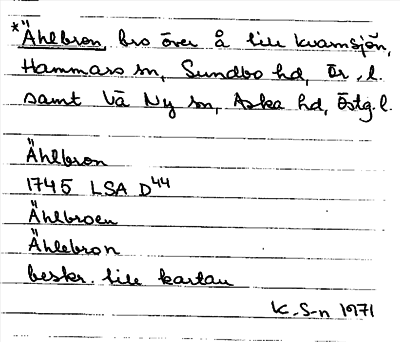 *Ählbron, bro över å till kvarnsjön,
Hammars sn, Sundbo hd, Ör. l.
samt Vä Ny sn, Aska hd, Östg. l.
Ählbron
1745 LSA D44
Ählbroen
Ählebron
beskr. till kartan
K. S-n 1971